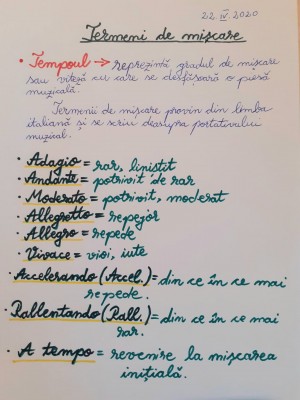 22.IV.2020
Termeni de mișcare
• Tempoul → reprezintă gradul de mișcare
sau viteză cu care se desfășoară o piesă
muzicală.
Termenii de mișcare provin din limba
italiană și se scriu deasupra portativului
muzical.
• Adagio = rar, liniștit
• Andante = potrivit de rar
• Moderato = potrivit, moderat
• Allegretto = repejor
• Allegro = repede
• Vivace = vioi, iute
• Accelerando (Accel.) = din ce în ce mai
repede.
Rallentando (Rall.) = din ce în ce mai
rar.
• A tempo = revenire la mișcarea
inițială.